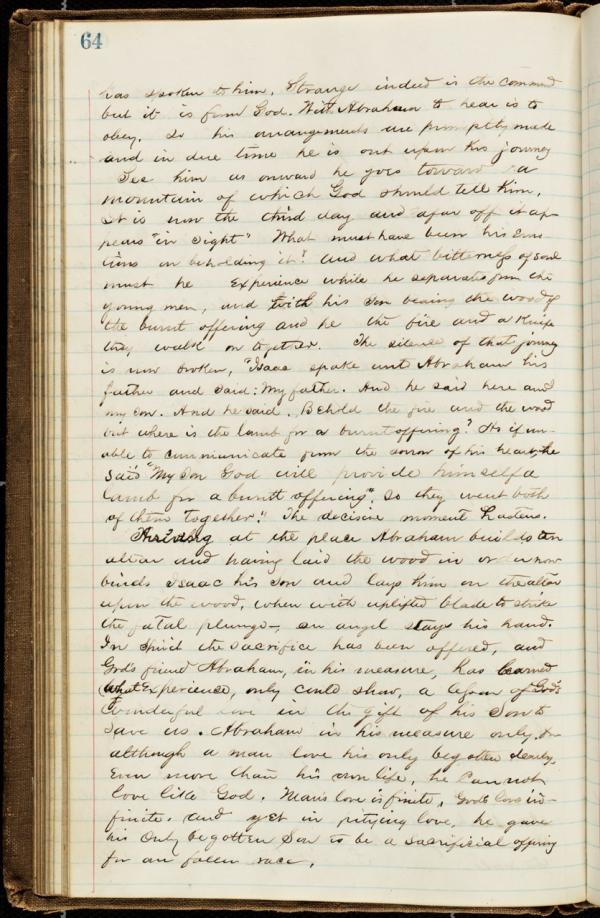 64
has spoken to him, Strange indeed is the command
but it is from God. With Abraham to hear is to
obey, So his arrangements are promptly made
and in due time he is out upon his journey
See him as onward he goes toward a
mountain of which God should tell him,
It is now the third day and afar off it ap-
pears "in sight" What must have been his Emo-
tions on beholding it! and what bitterness of soul
must he Experience while he separates from the
young men, and with his son bearing the wood of
the burnt offering and he the fire and a Knife
they walk on together. The silence of that journey
is now broken, "Isaac spake unto Abraham his
father and said: My father. And he said here am I
my son. And he said, Behold the fire and the wood
but where is the lamb for a burnt offering? As if un-
able to communicate from the sorrow of his heart, he
said "My Son God will provide himself a
lamb for a burnt offering" So they went both
of them together." The decisive moment hastens.
Arriving at the place Abraham builds an
altar and having laid the wood in order now
binds Isaac his son and lays him on the altar
upon the wood, when with uplifted blade to strike
the fatal plunge, an angel stays his hand.
In spirit the sacrifice has been offered, and
God's friend Abraham, in his measure, has learned
what Experience, only could show, a lesson of God's
wonderful love in the gift of his Son to
save us. Abraham in his measure only, for
although a man love his only begotten dearly,
Even more than his own life, he cannot
love like God. Man's love is finite, God's love in-
finite. and yet in pitying love, he gave
his Only begotten Son to be a sacrificial offering
for our fallen race.